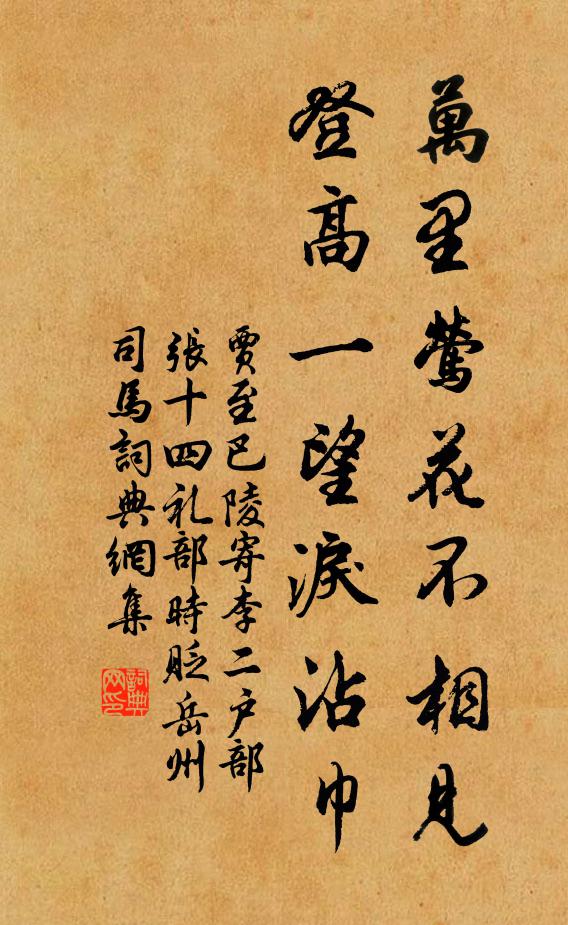 萬里鶯花不相見
登高一望淚沾巾
賈至巴陵寄李二户部
張十四礼部時貶岳州
司馬詞典網集
詞典網印